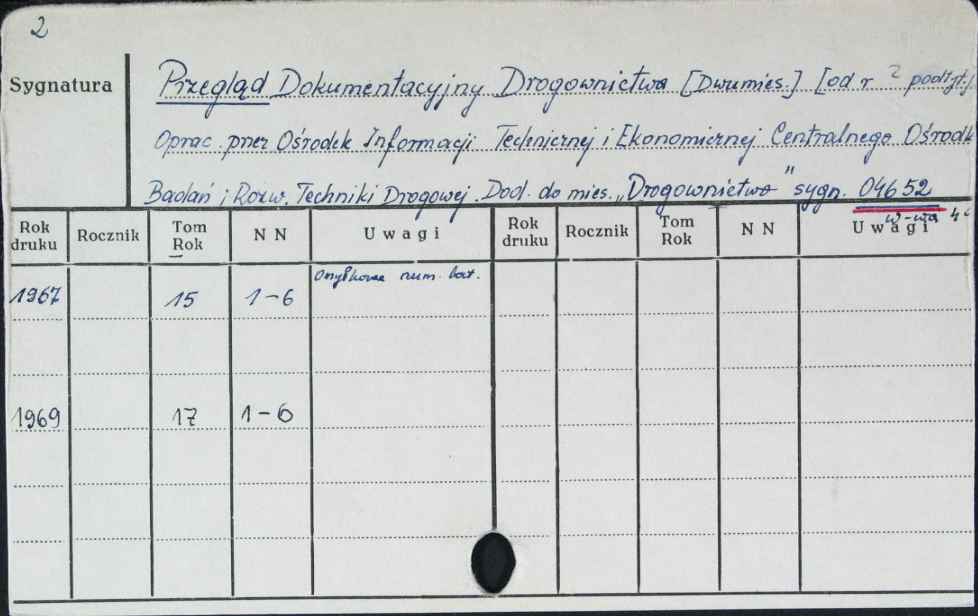 2
Sygnatura
Przegląd Dokumentacyjny Drogownictwa [Dwumies.] [od r. ? podtyt.:
Oprac. przez Ośrodek Informacji Technicznej i Ekonomicznej Centralnego Ośrodk
Badań i Rozw. Techniki Drogowej. Dod. do mies. „Drogownictwo" sygn. 04652
W-wa 4°
Rok druku Rocznik Tom Rok N N Uwagi Rok druku Rocznik Tom Rok N N Uwagi
1967 15 1-6 num.
1969 17 1-6